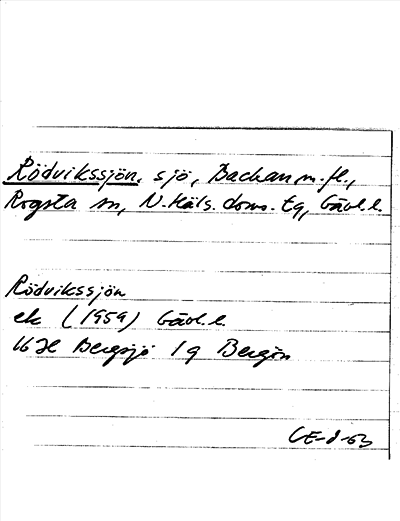 Rödvikssjön, sjö, Backan m.fl.,
Rogsta sn, N. Häls. doms. tg, Gävl.l.
Rödvikssjön
ek (1959) Gävl.l.
16 H Bergsjö 1 g Bergön
CE-d-63